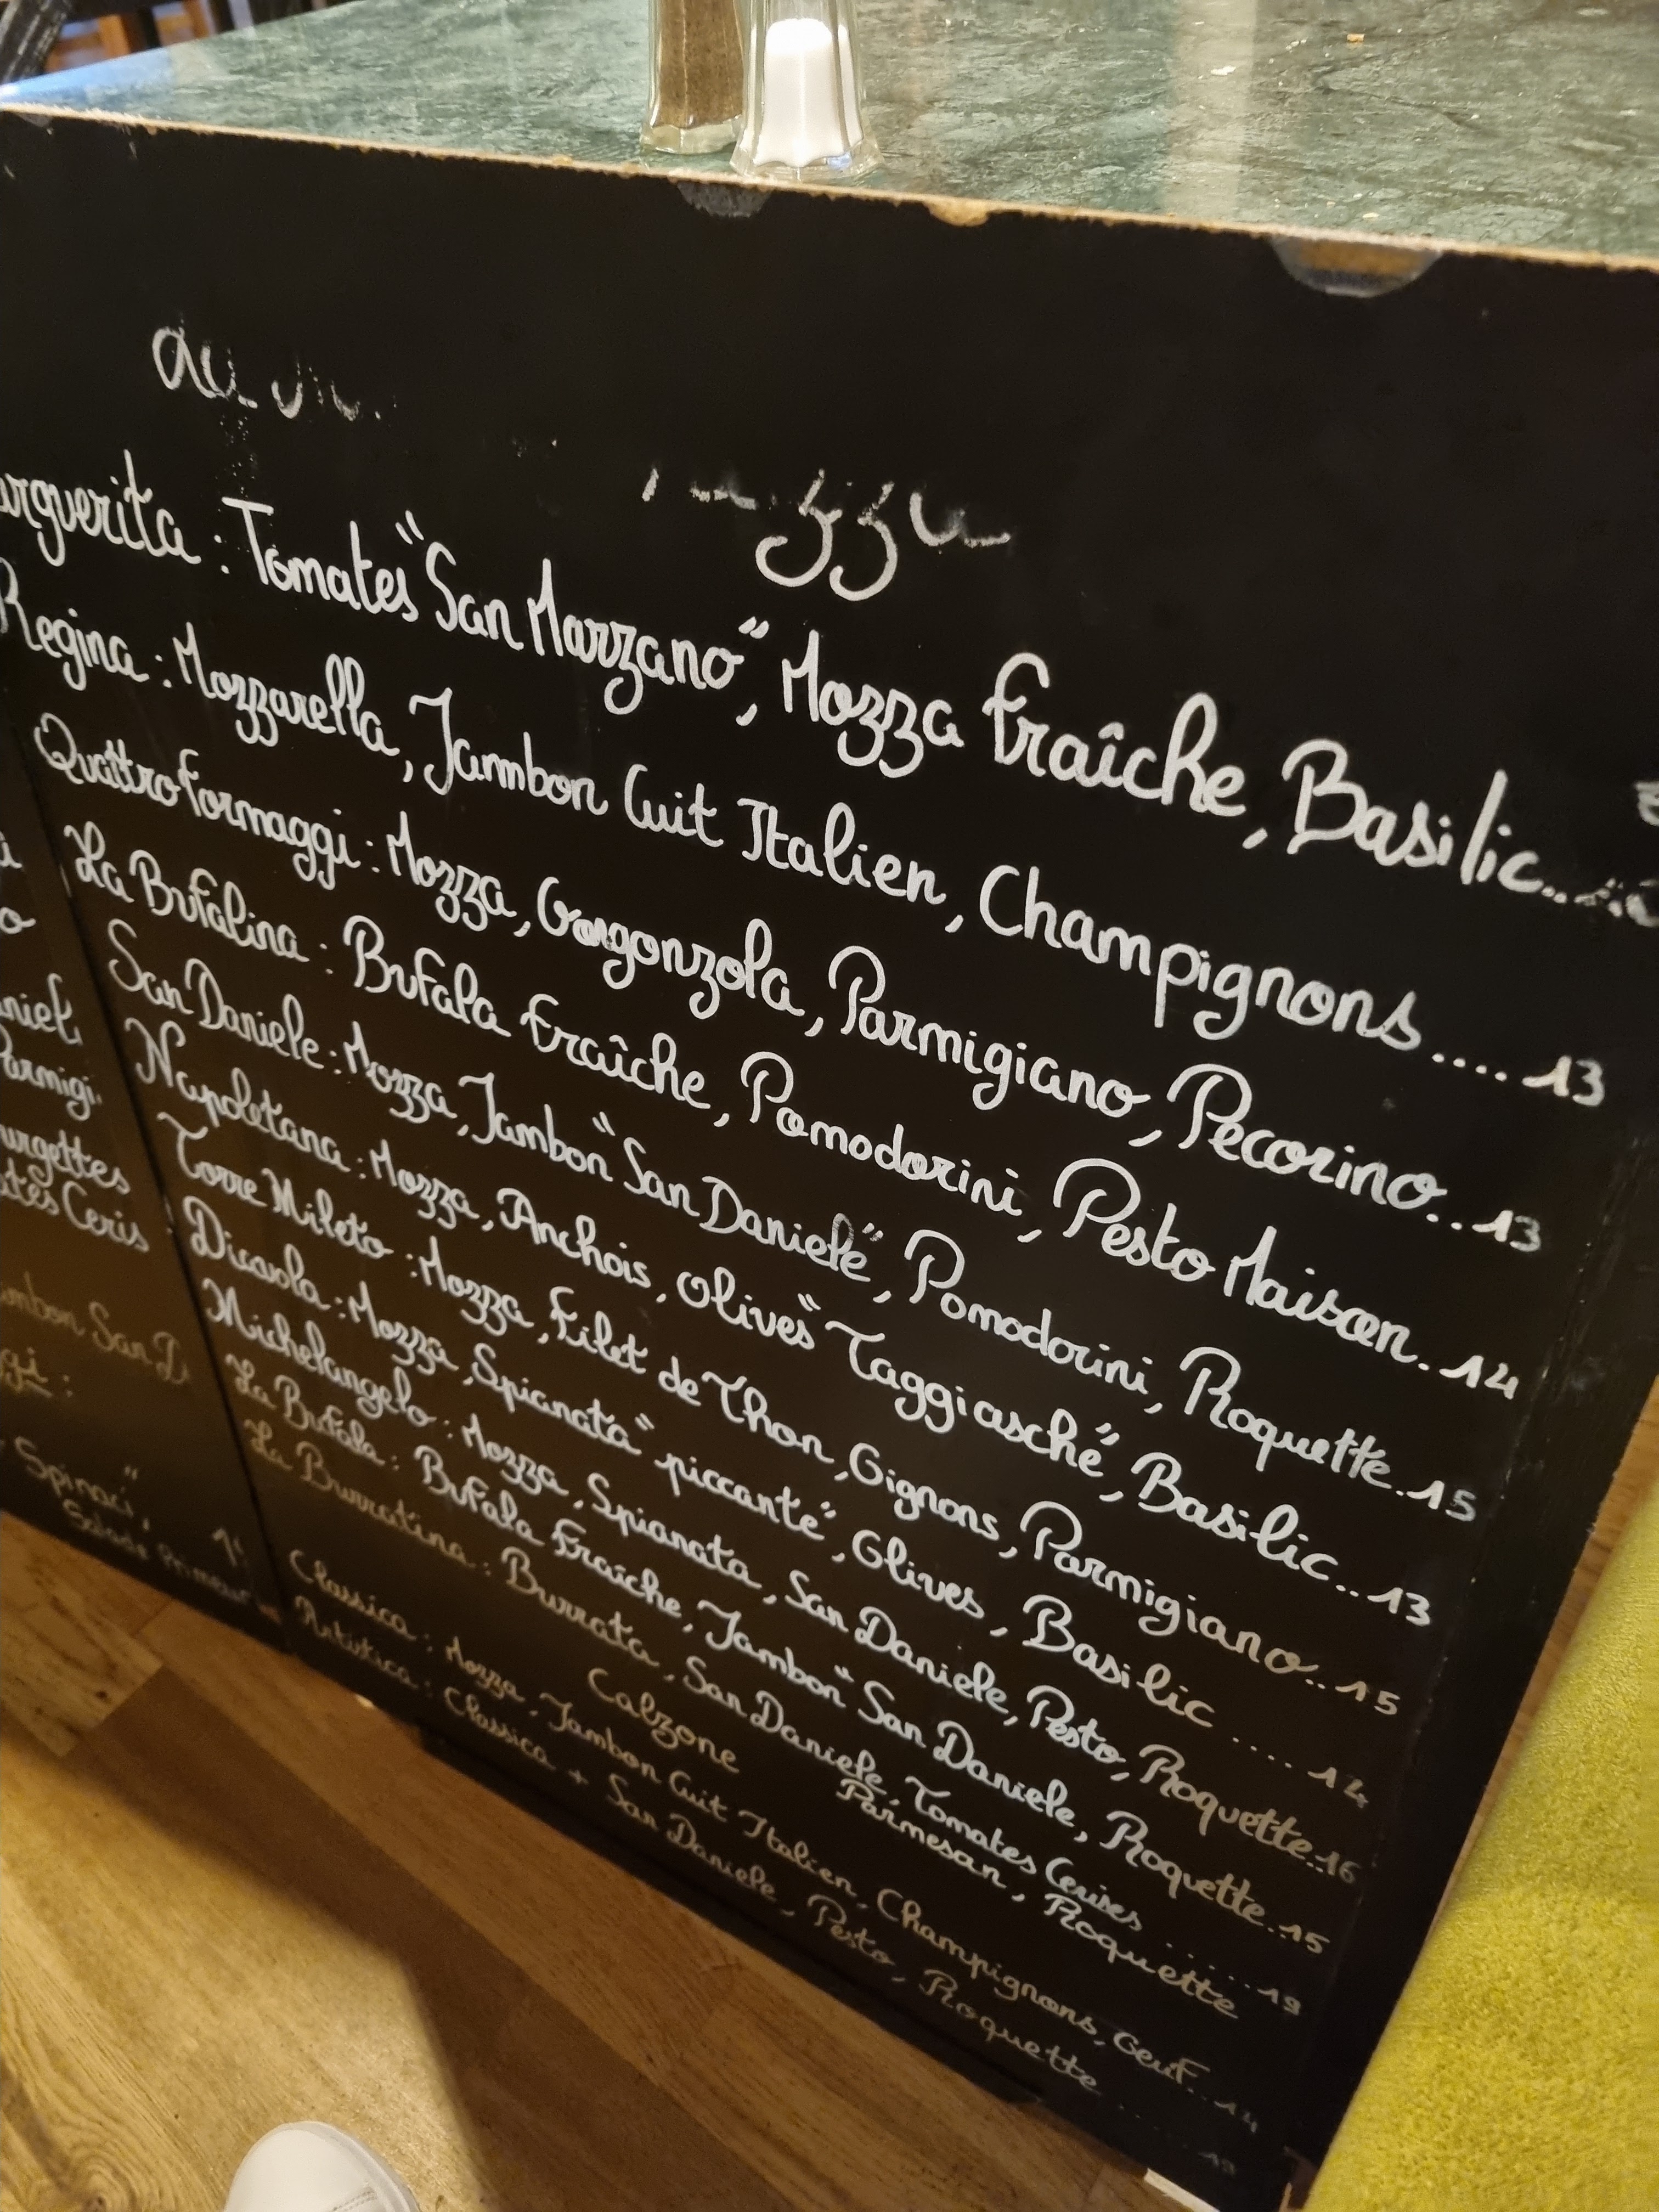 Marguerita : Tomates "San Marzano", Mozza Fraîche, Basilic...
Regina : Mozzarella, Jambon Cuit Italien, Champignons.... 13
Quattro Formaggi : Mozza, Gorgonzola, Parmigiano, Pecorino.. 13
La Bufalina : Bufala Fraîche, Pomodorini, Pesto Maison. 14
San Daniele : Mozza, Jambon "San Daniele", Pomodorini, Roquette.. 15
Napoletana : Mozza, Anchois, Olives "Taggiasche", Basilic.. 13
Torre Mileto : Mozza, Filet de Thon, Oignons, Parmigiano.. 15
Diavola : Mozza, Spianata "piccante", Olives, Basilic .... 14
Michelangelo : Mozza, Spianata, San Daniele, Pesto, Roquette.. 16
La Bufala : Bufala Fraîche, Jambon "San Daniele, Roquette.. 15
La Burratina : Burrata, San Daniele, Tomates Cerises ..... 19
Parmesan, Roquette
Calzone
Classica : Mozza, Jambon Cuit Italien, Champignons, Oeuf... 14
Artistica : Classica + San Daniele, Pesto, Roquette
niel,
Parmigi.
urgettes
ates Ceris
mbon San D
ggi :
Spinaci",
Salade Primeur